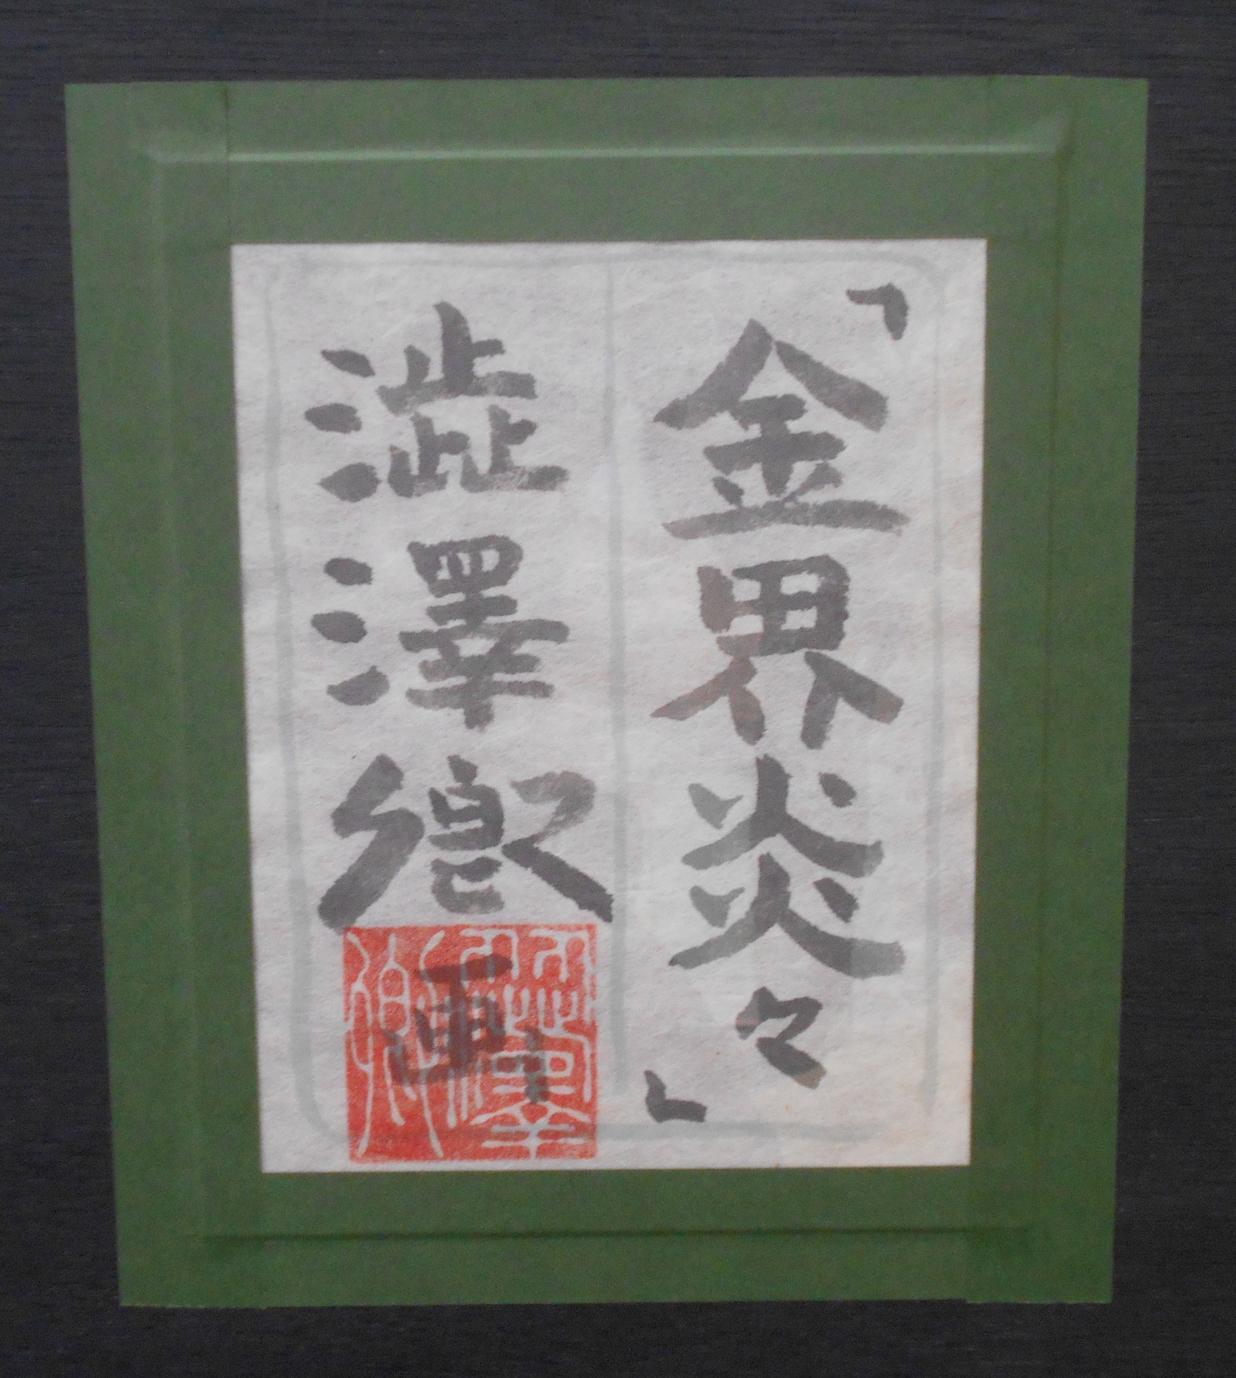 「金界炎々」
澁澤卿画